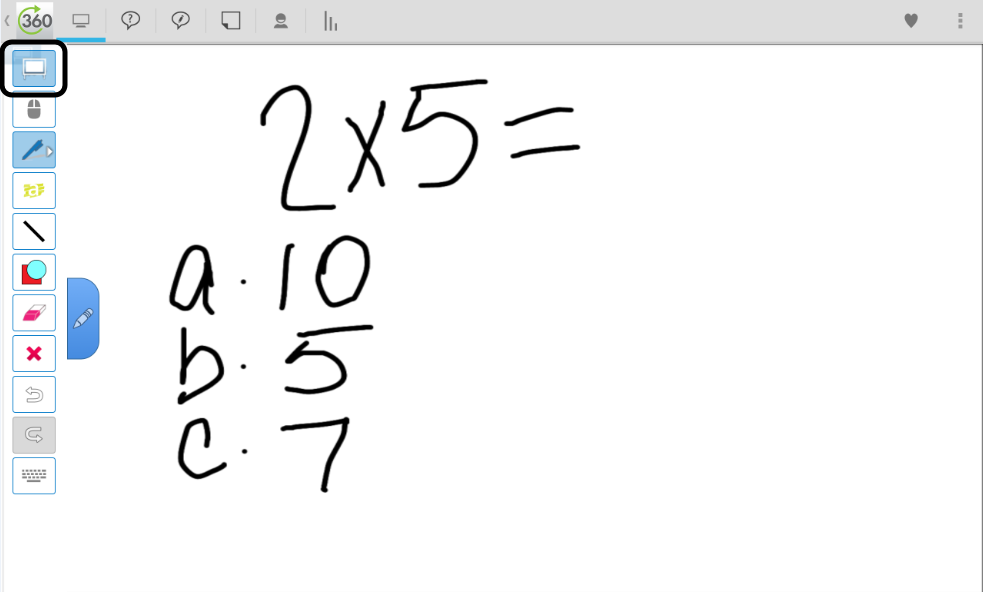 360
2x5=
a. 10
b. 5
c. 7